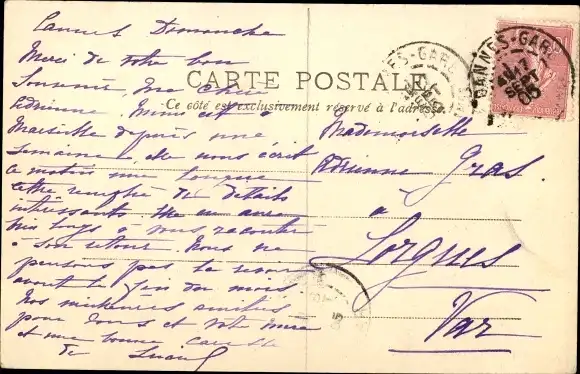 Cannes Dimanche
Merci de votre bon
souvenir, ma chère
Adrienne. Mimi est à
Marseille depuis une
semaine, elle nous écrit
ce matin une longue
lettre remplie de détails
intéressants. Elle en aura
bien longs à vous raconter
à son retour. Nous ne
pensons pas la revoir
avant la fin du mois
Nos meilleures amitiés
pour tous et votre mère
et une bonne caresse
de
CARTE POSTALE
Ce côté est exclusivement réservé à l'adresse
Mademoiselle
Adrienne Gras
à
Lorgues
Var
CANNES-GARE
SEPT
05